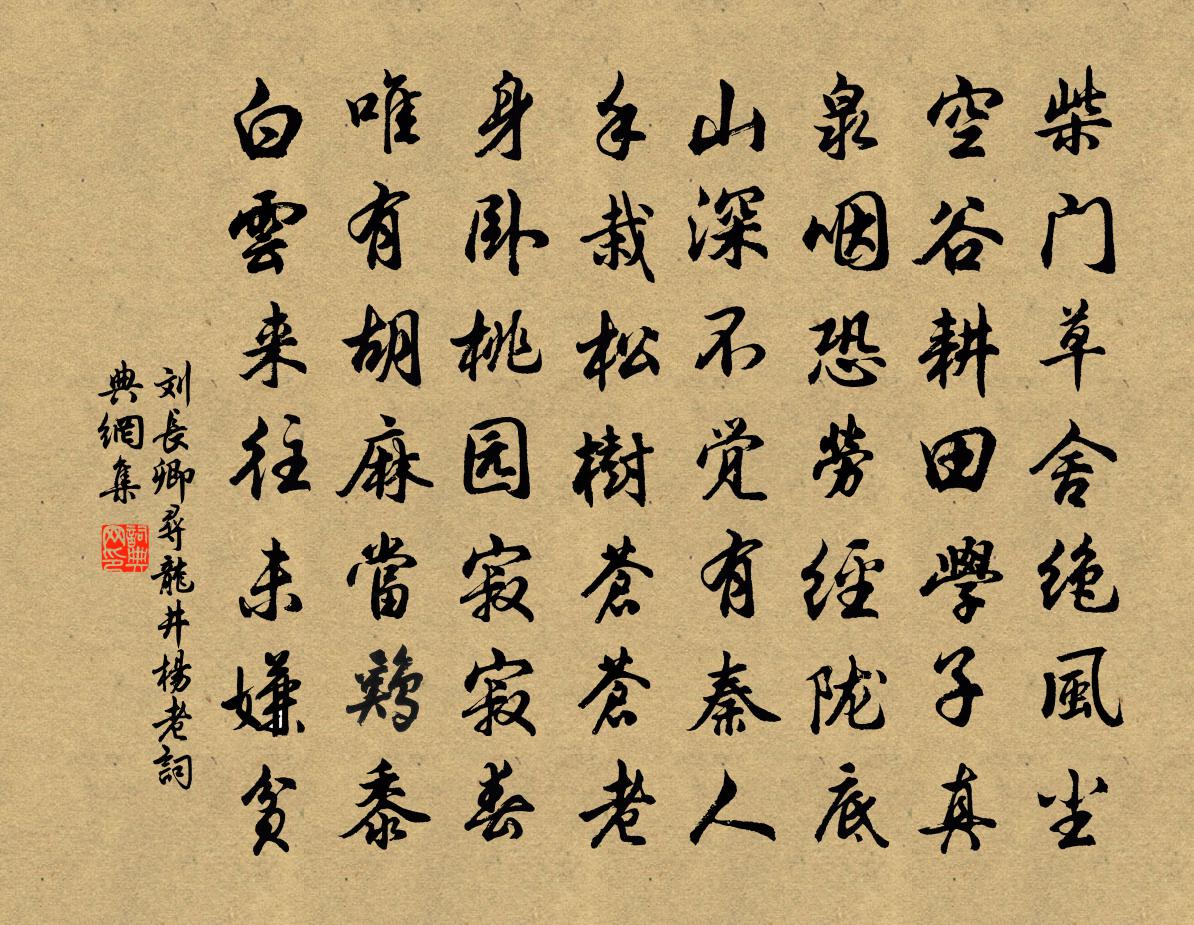 柴门草舍绝風尘
空谷耕田學子真
泉咽恐勞經陇底
山深不觉有秦人
手栽松樹蒼蒼老
身卧桃园寂寂春
唯有胡麻當鷄黍
白雲来往未嫌貧
刘長卿尋龍井楊老詞
典網集
詞典
网印